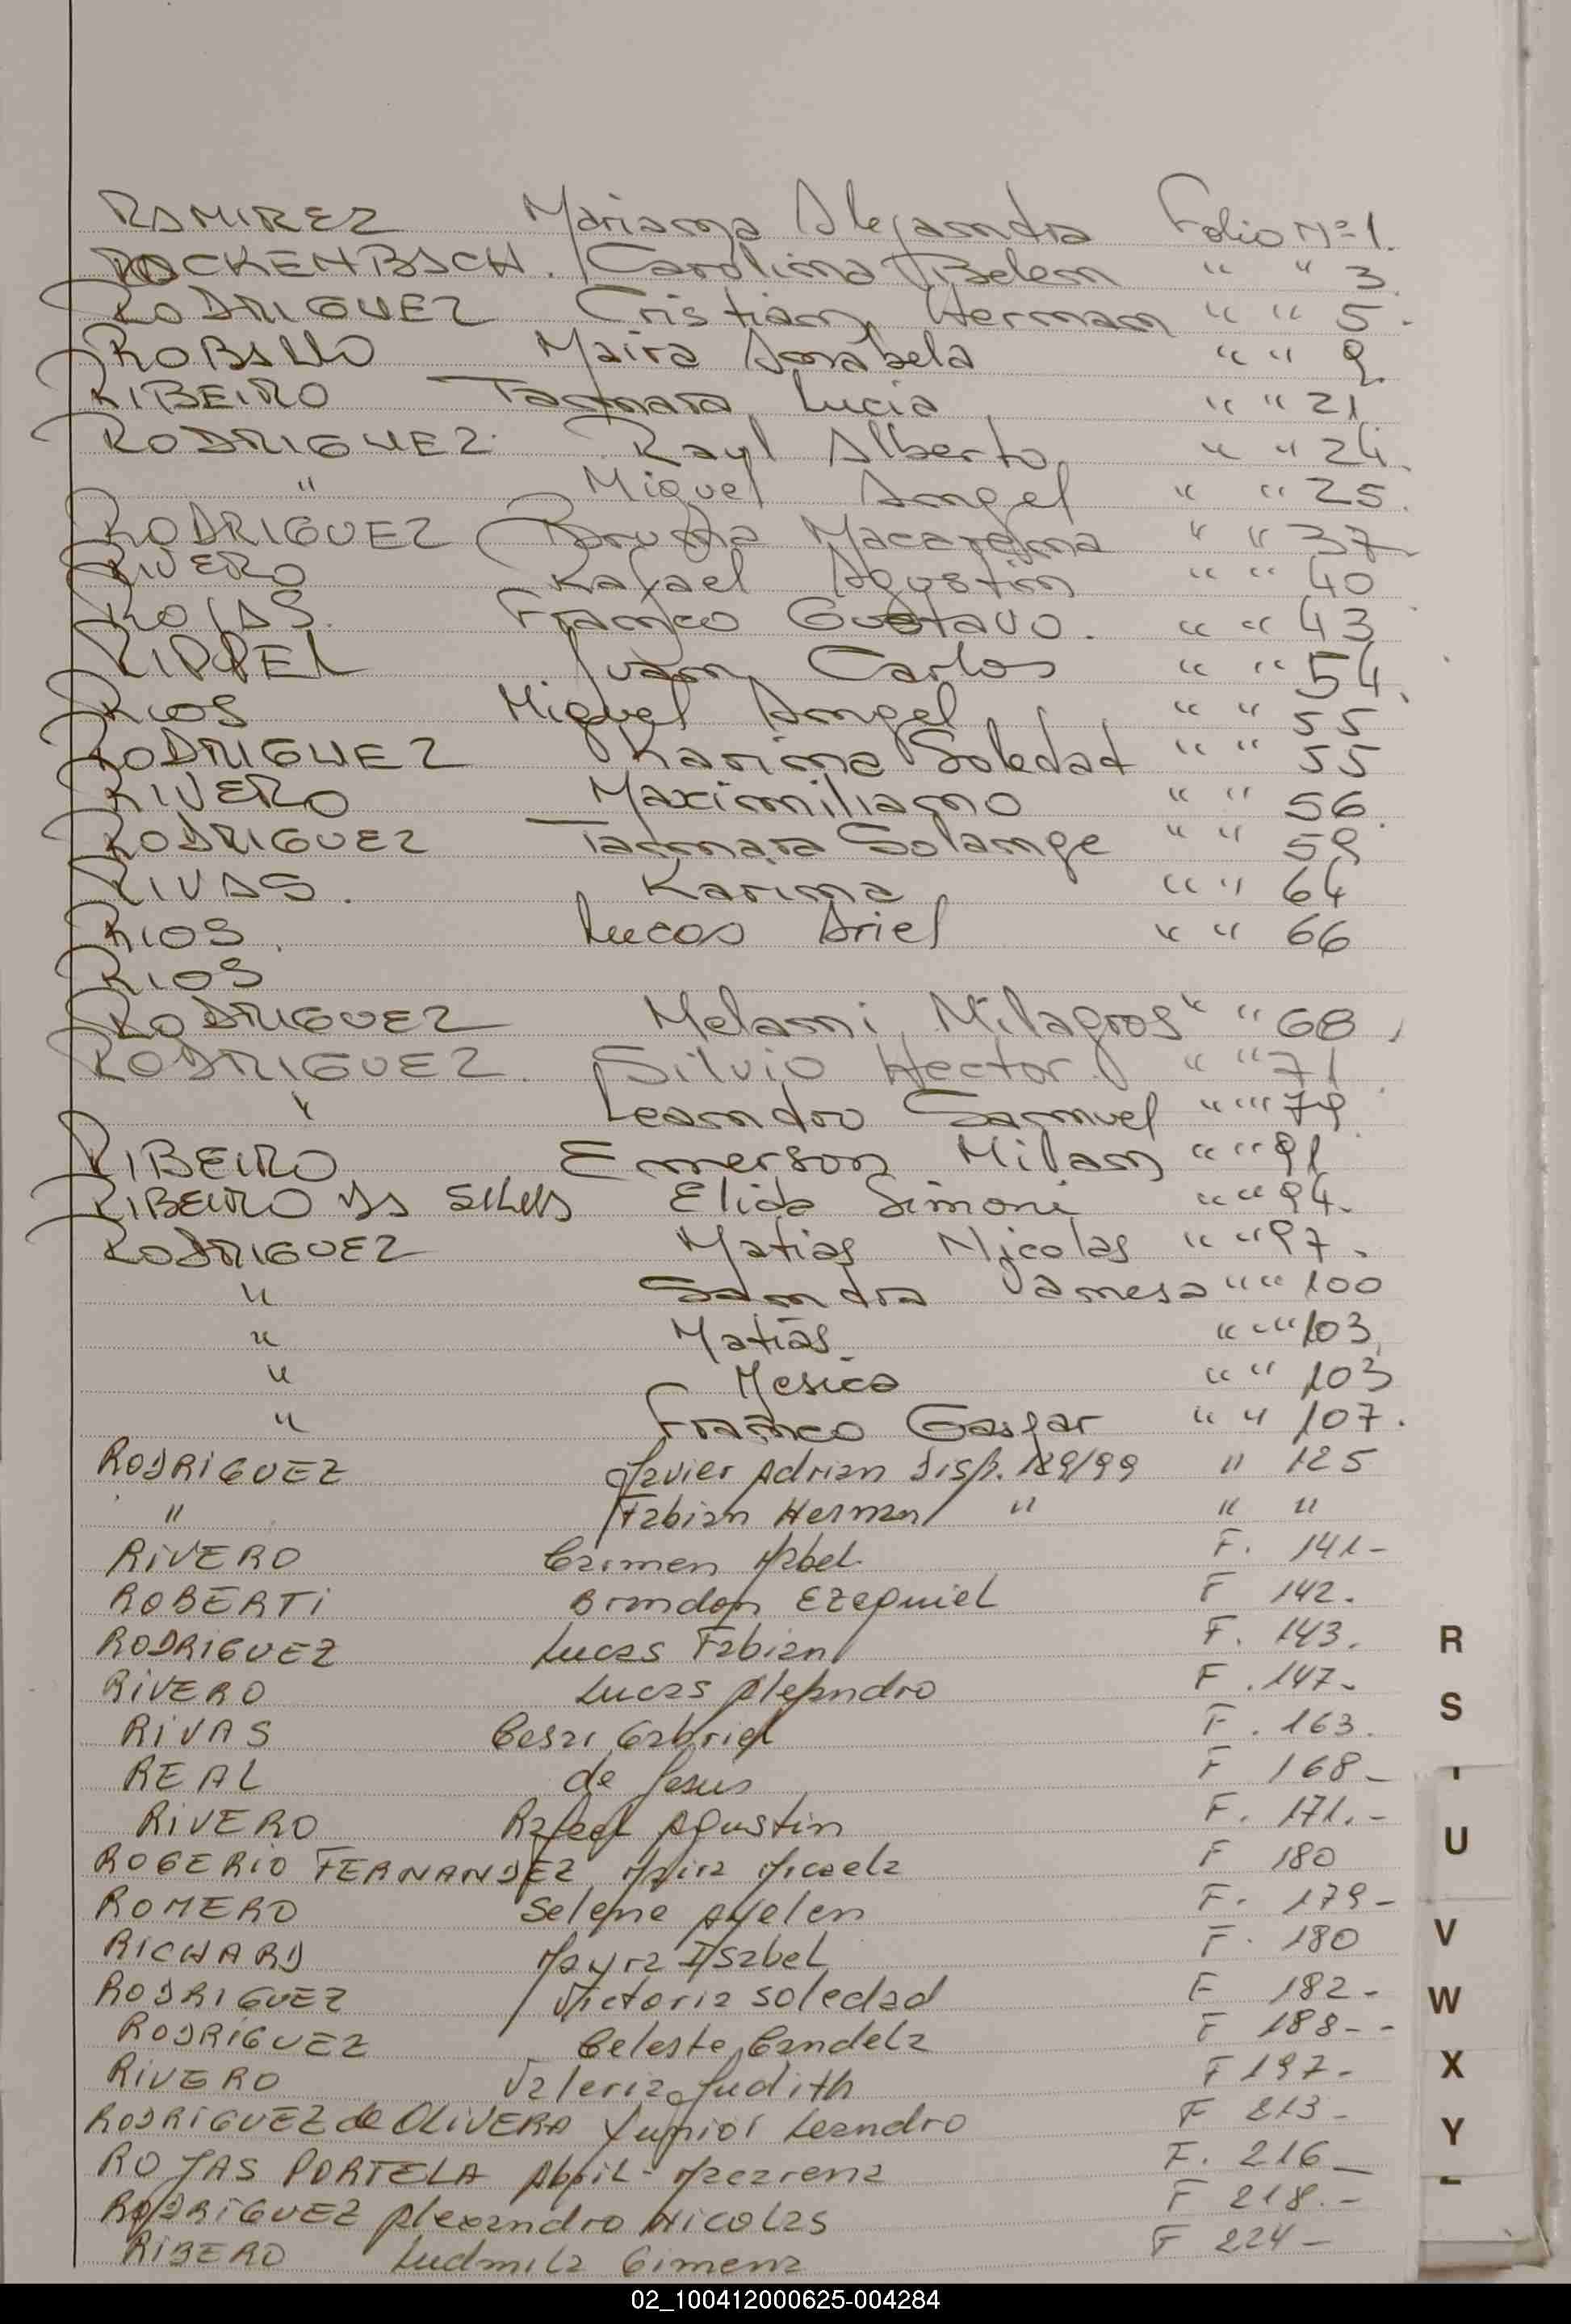 RAMIREZ Mariana Alejandra Folio Nº 1.
ROCKENBACH. Carolina Belen " " 3
RODRIGUEZ Cristian Hernan " " 5.
ROBALLO Maira Anabela " " 9
RIBEIRO Tamara Lucia " " 21
RODRIGUEZ Raul Alberto " " 24.
" Miguel Angel " " 25.
RODRIGUEZ Bruna Macarena " " 37
RIVERO Rafael Agustin " " 40
ROJAS. Franco Gustavo. " " 43
RIPPEL Juan Carlos " " 54
RIOS Miguel Angel " " 55
RODRIGUEZ Karina Soledad " " 55
RIVERO Maximiliano " " 56
RODRIGUEZ Tamara Solange " " 59
RIVAS. Karina " " 64
RIOS. Lucas Ariel " " 66
RIOS
RODRIGUEZ Melani Milagros " " 68
RODRIGUEZ. Silvio Hector. " " 71
" Leandro Samuel " " 79
RIBEIRO Emerson Milan " " 91
RIBEIRO DA SILVA Elida Simoni " " 94.
RODRIGUEZ Matias Nicolas " " 97.
" Sandra Vanesa " " 100
" Matías. " " 103
" Yesica " " 103
" Franco Gaspar " " 107.
RODRIGUEZ Javier Adrian Disp. 129/99 " 125
" Fabian Hernan " " "
RIVERO Carmen Mabel F. 141-
ROBERTI Brandon EZequiel F 142.
RODRIGUEZ Lucas Fabian F. 143.
RIVERO Lucas Alejandro F. 147-
RIVAS Cesar Gabriel F. 163.
REAL de Jesus F 168-
RIVERO Rafael Agustin F. 171.-
ROGERIO FERNANDEZ Maira Micaela F 180
ROMERO Selene Ayelen F. 179-
RICHARD Mayra Isabel F. 180
RODRIGUEZ Victoria Soledad F 182-
RODRIGUEZ Celeste Candela F 188--
RIVERO Valeria Judith F 197-
RODRIGUEZ de OLIVERA Yunior Leandro F 213-
ROJAS PORTELA Abril Macarena F. 216-
RODRIGUEZ Alexandro Nicolas F 218.-
RIBERO Ludmila Gimena F 224-
R
S
U
V
W
X
Y
02_100412000625-004284